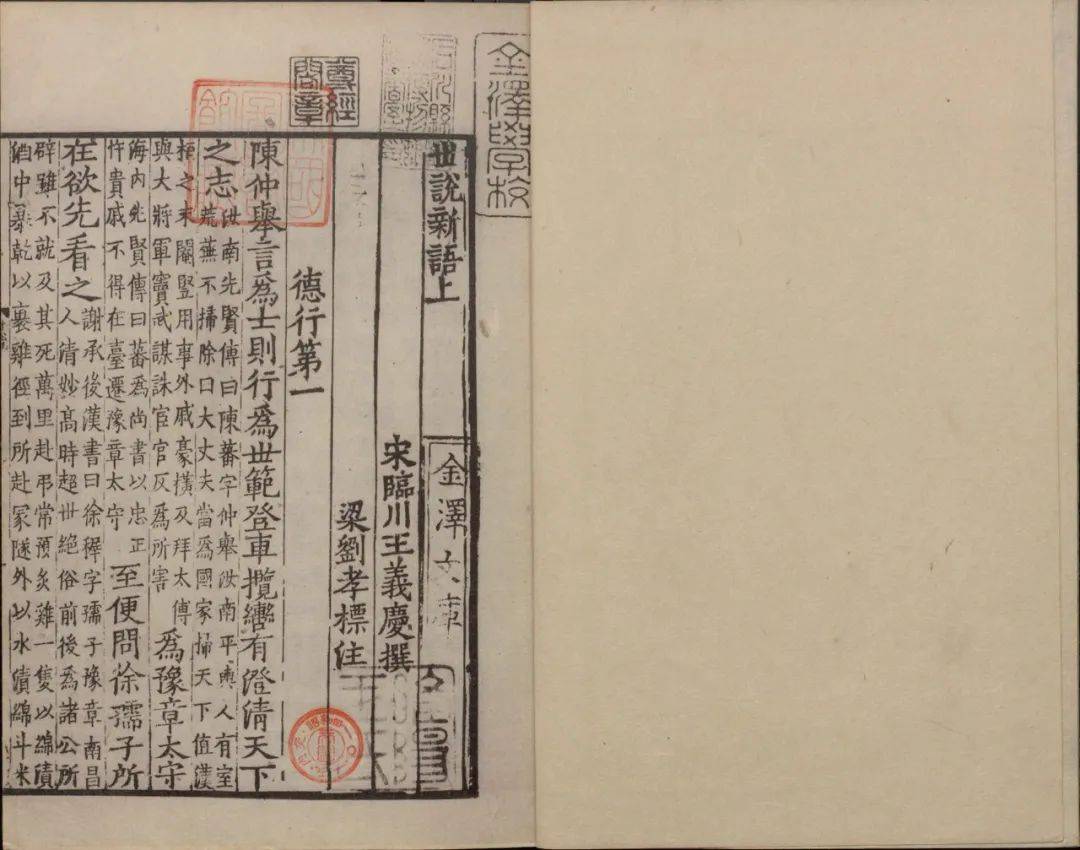 金澤學校
尊經閣章
世說新語上
金澤文庫
宋臨川王義慶撰
梁劉孝標注
德行第一
陳仲舉言為士則行為世範登車攬轡有澄清天下
之志
汝南先賢傳曰陳蕃字仲舉汝南平輿人有室
荒蕪不掃除曰大丈夫當為國家掃天下值漢
桓之末閹豎用事外戚豪橫及拜太傅
與大將軍竇武謀誅宦官反為所害
為豫章太守
海內先賢傳曰蕃為尚書以忠正
忤貴戚不得在臺遷豫章太守
至便問徐孺子所
在欲先看之
謝承後漢書曰徐穉字孺子豫章南昌
人清妙高時超世絕俗前後為諸公所
辟雖不就及其死萬里赴弔常預炙雞一隻以綿漬
酒中暴乾以裹雞徑到所赴冢隧外以水漬綿斗米